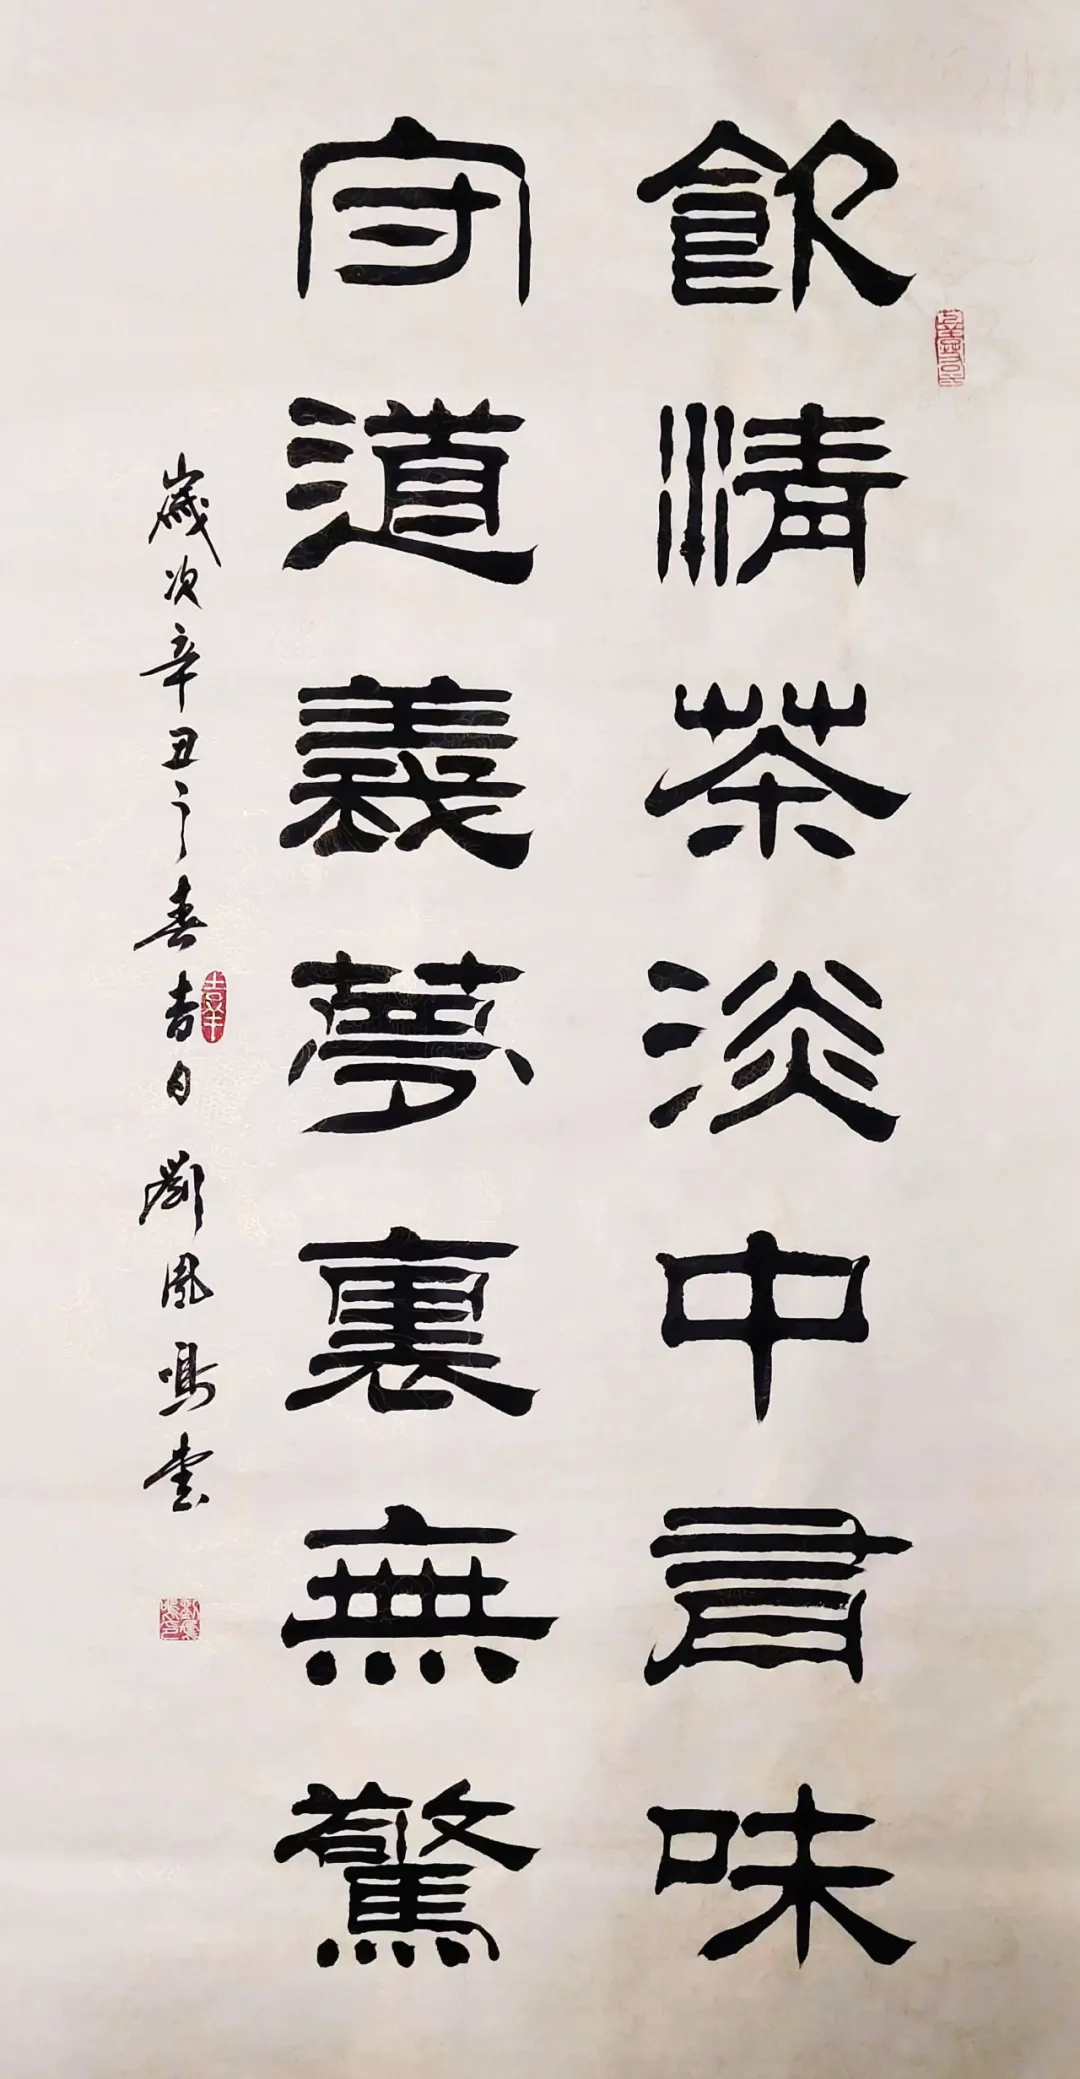 飲清茶淡中有味
守道義夢裏無驚
歲次辛丑之春吉日劉鳳鳴書
吉羊